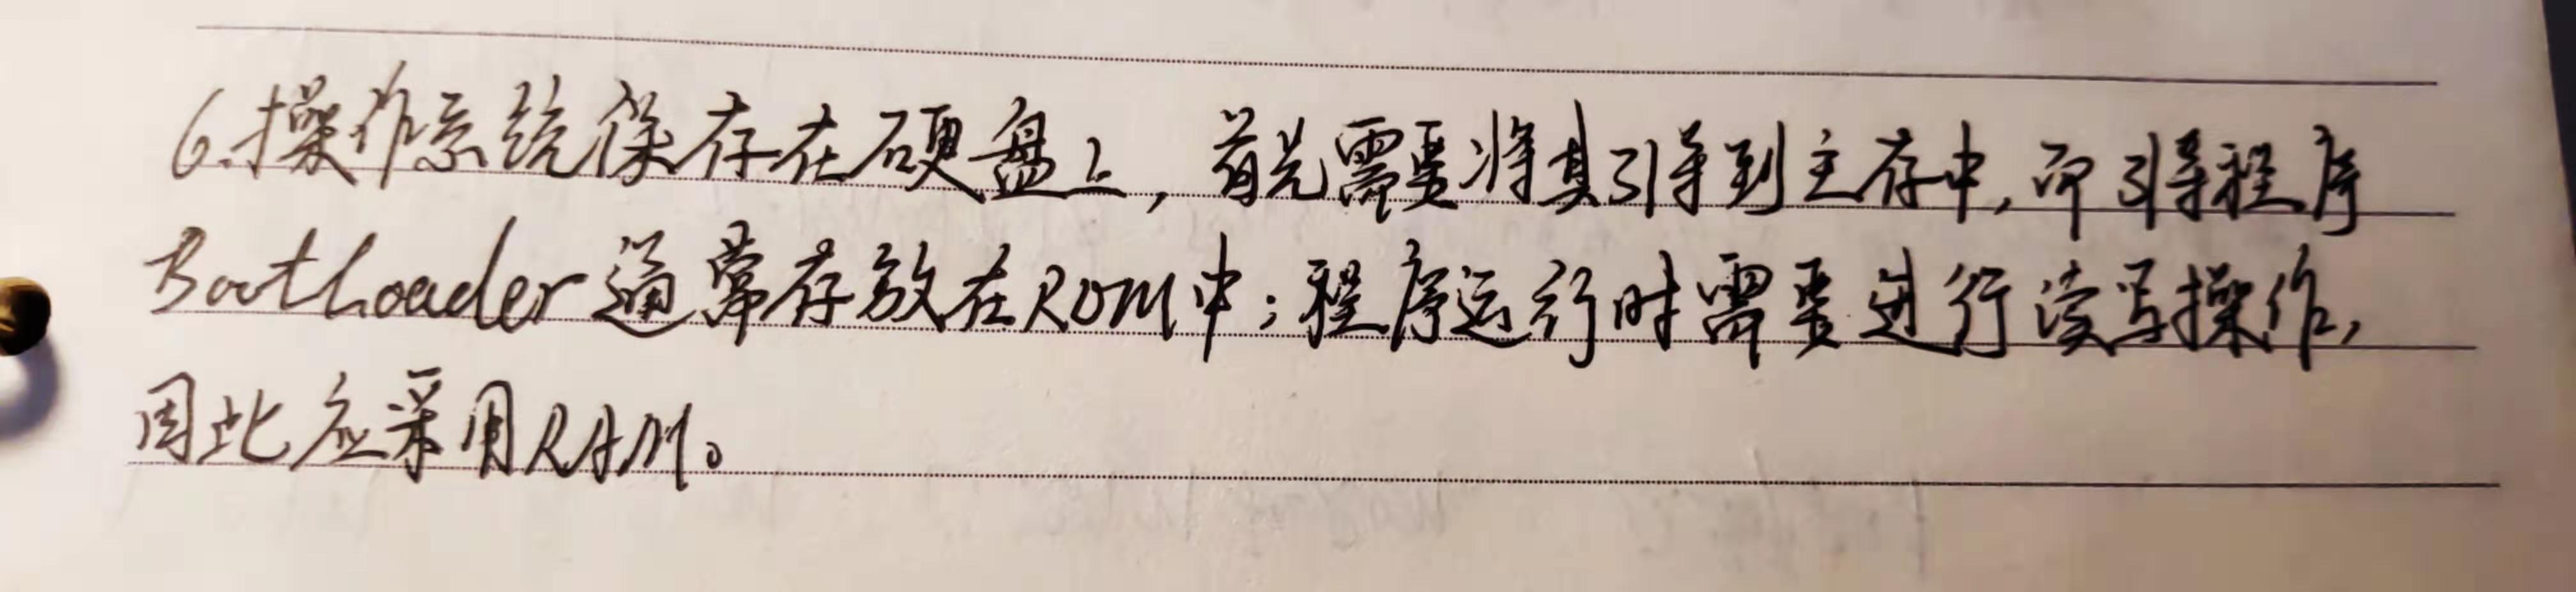 6.操作系统保存在硬盘上，首先需要将其引导到主存中，而引导程序
BootLoader通常存放在ROM中；程序运行时需要进行读写操作，
因此应采用RAM。